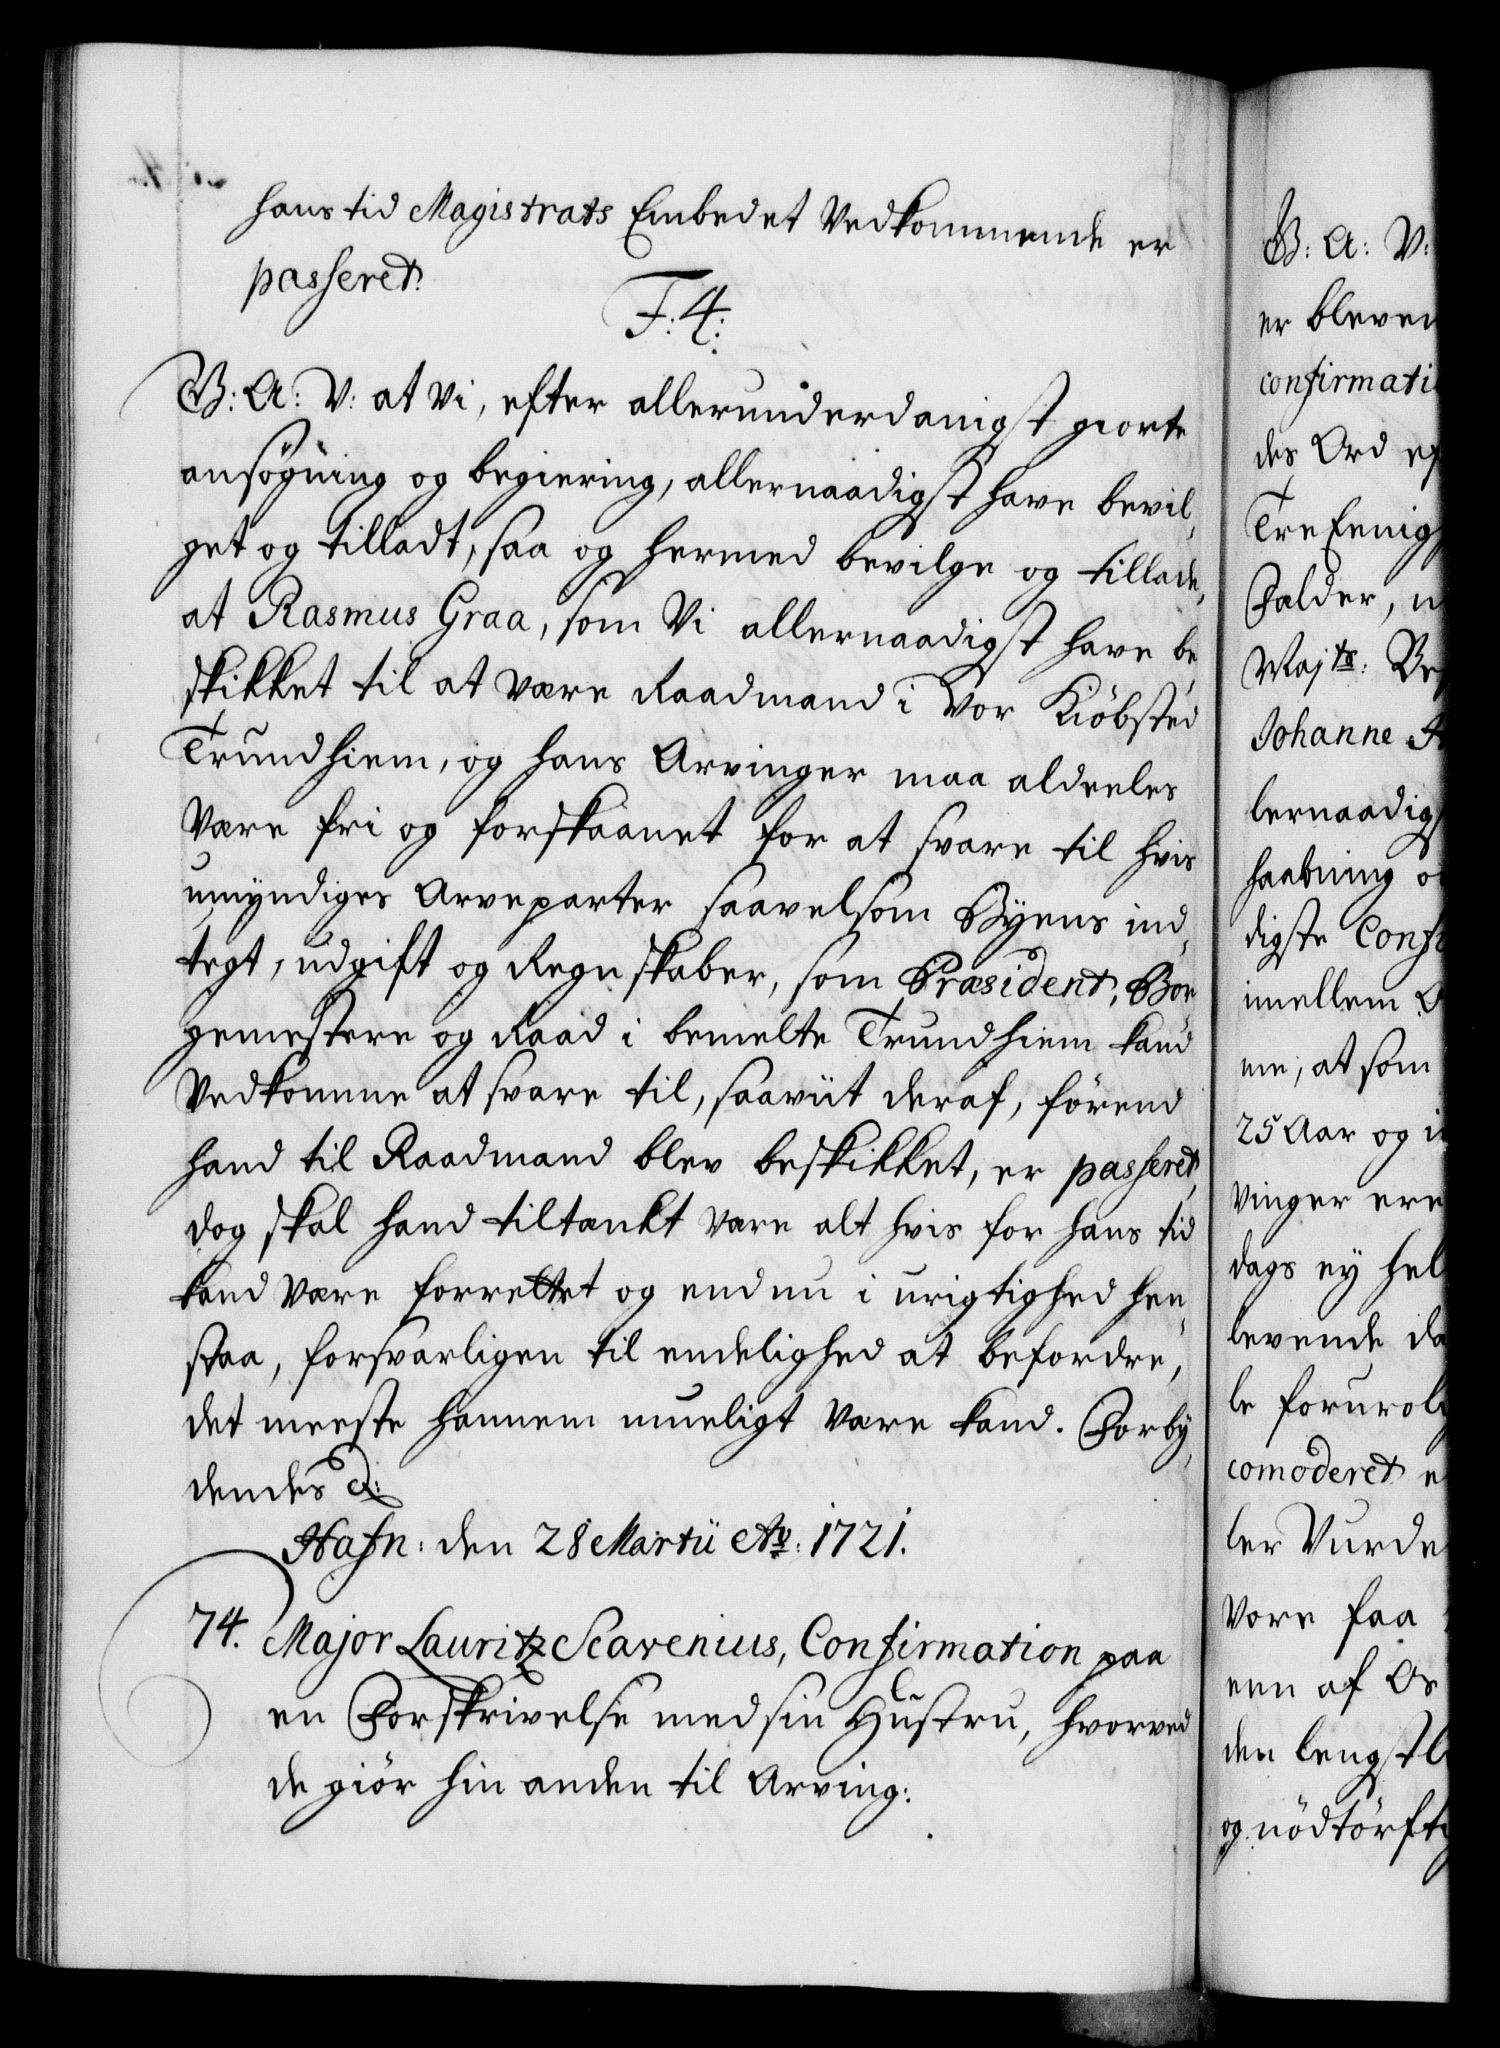 hans tid Magistrats Embedet Vedkommende er
passeret.
F: 4:
G: A: V: at Vi, efter allerunderdanigst giorte
ansögning og begiering, allernaadigst have bevil,
get og tilladt, saa og hermed bevilge og tillade,
at Rasmus Graa, som Vi allernaadigst have be,
skikket til at være Raadmand i Vor Kiöbsted
Trundhiem, og hans Arvinger maa aldeeles
være fri og forskaanet for at svare til hvis
umyndiges Arveparter saavelsom Byens ind,
tegt, udgift og Regnskaber, som Præsident, Bor,
gemestere og Raad i bemelte Trundhiem kand
Vedkomme at svare til, saaviit deraf, förend
hand til Raadmand blev beskikket, er passeret,
dog skal hand tiltænkt være alt hvis for hans tid
kand være forrettet og endnu i urigtighed hen,
staa, forsvarligen til endelighed at befordre,
det meeste hannem mueligt være kand. Forby,
dendes &:
Hafn: den 28 Martii Ao: 1721.
74. Major Lauritz Scavenius, Confirmation paa
en Forskrivelse med sin Hustru, hvorved
de giör hin anden til Arving:
G: A: V:
er bleven
confirmati
des Ord ef
Tre Eenig
Falder,
Majts:
Johanne
lernaadigs
haabning
digste Conf
imellem
me, at som
25 Aar og i
vinger ere
dags ey hel
levende da
le foruroli
comoderet e
ler Vurde
vore faa
een af Os
den lengstl
og nödtörfti